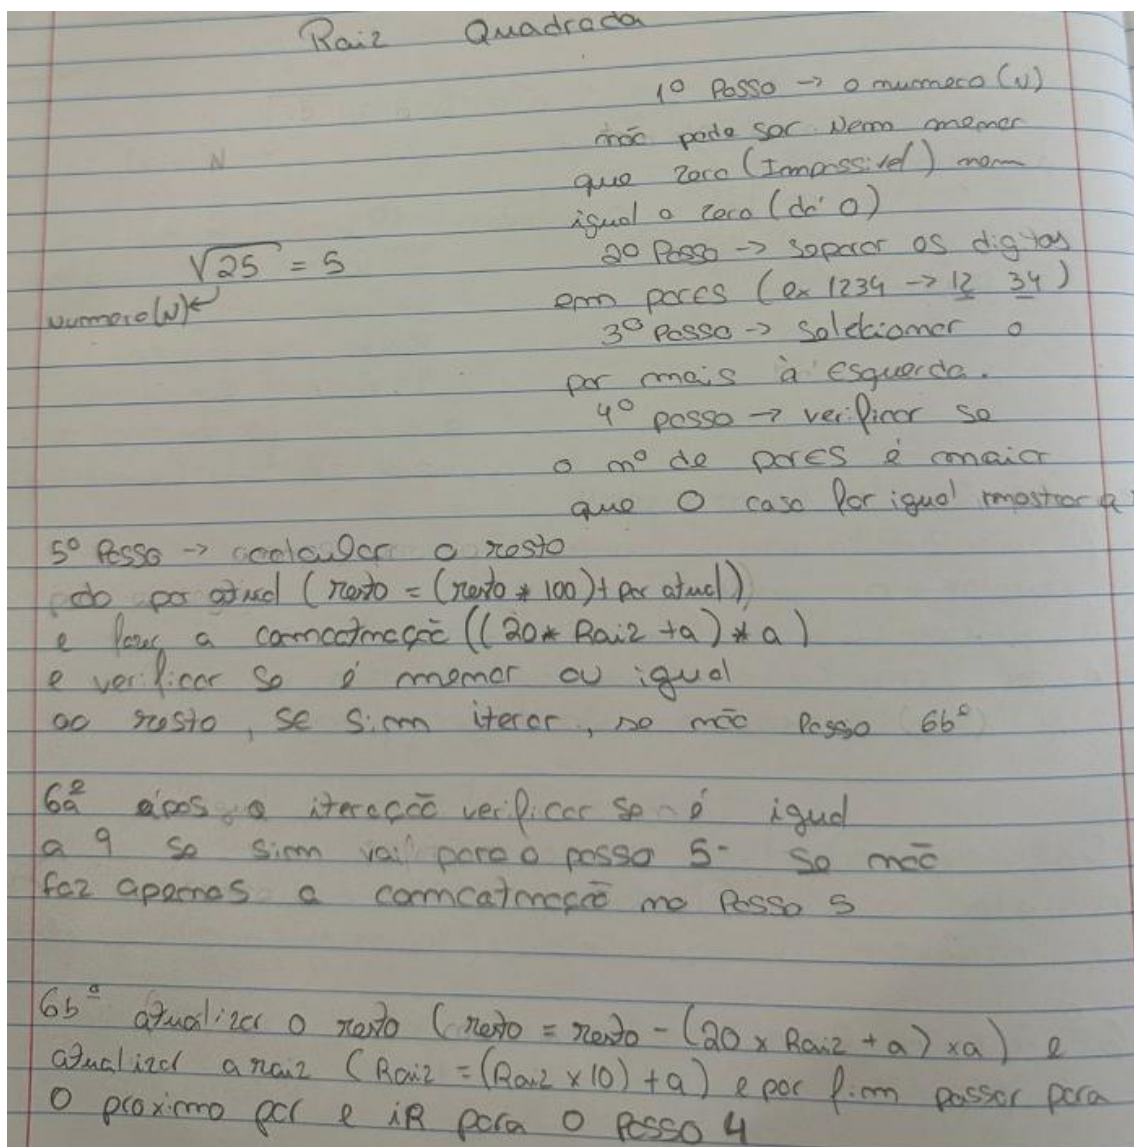 Raiz Quadrada
1º Passo -> o numero (N)
não pode ser Nem menor
que zero (Impossivel) nem
igual a zero (dá 0)
√25 = 5
numero(N)
2º Passo -> separar os digitos
em pares (ex 1234 -> 12 34)
3º Passo -> seletionar o
par mais à esquerda.
4º passo -> verificar se
o nº de pares é maior
que 0 caso for igual mostrar a
5º Passo -> calcular o resto
do par atual (resto = (resto * 100) + par atual)
e fazer a concatnação ((20 * Raiz + a) * a)
e verificar se é menor ou igual
ao resto, se sim iterar, se não Passo 6bº
6aº após a iteração verificar se é igual
a 9 se sim vai para o passo 5- se não
faz apenas a concatnação no Passo 5
6bª atualizar o resto (resto = resto - (20 x Raiz + a) x a) e
atualizar a raiz (Raiz = (Raiz x 10) + a) e por fim passar para
o proximo par e iR para o Passo 4